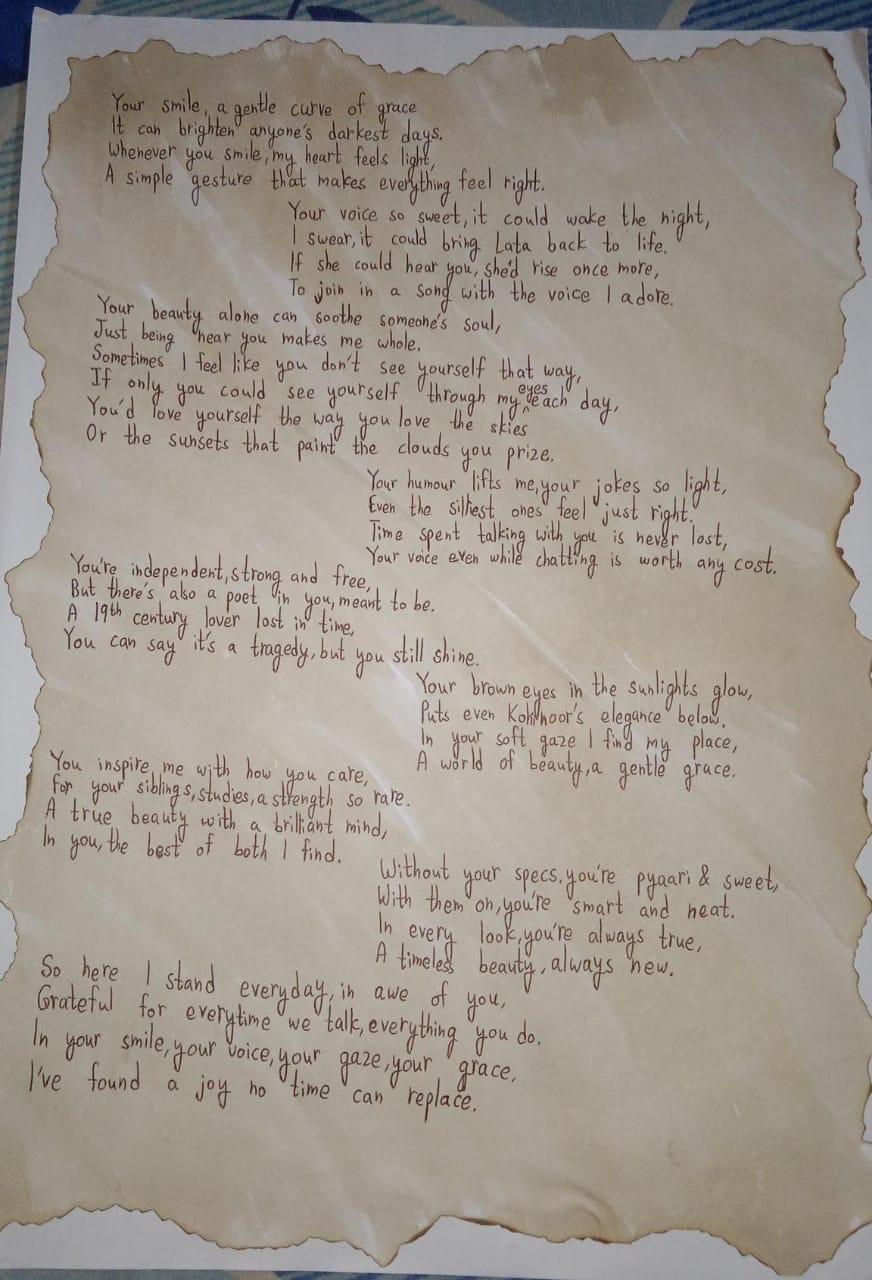 Your smile, a gentle curve of grace
It can brighten anyone's darkest days.
Whenever you smile, my heart feels light,
A simple gesture that makes everything feel right.
Your voice so sweet, it could wake the night,
I swear, it could bring Lata back to life.
If she could hear you, she'd rise once more,
To join in a song with the voice I adore.
Your beauty alone can soothe someone's soul,
Just being near you makes me whole.
Sometimes I feel like you don't see yourself that way,
If only you could see yourself through my eyes each day,
You'd love yourself the way you love the skies
Or the sunsets that paint the clouds you prize.
Your humour lifts me, your jokes so light,
Even the silliest ones feel just right.
Time spent talking with you is never lost,
Your voice even while chatting is worth any cost.
You're independent, strong and free,
But there's also a poet in you, meant to be.
A 19th century lover lost in time,
You can say it's a tragedy, but you still shine.
Your brown eyes in the sunlights glow,
Puts even Kohinoor's elegance below.
In your soft gaze I find my place,
A world of beauty, a gentle grace.
You inspire me with how you care,
For your siblings, studies, a strength so rare.
A true beauty with a brilliant mind,
In you, the best of both I find.
Without your specs, you're pyaari & sweet,
With them on, you're smart and neat.
In every look, you're always true,
A timeless beauty, always new.
So here I stand everyday, in awe of you,
Grateful for everytime we talk, everything you do.
In your smile, your voice, your gaze, your grace,
I've found a joy no time can replace.